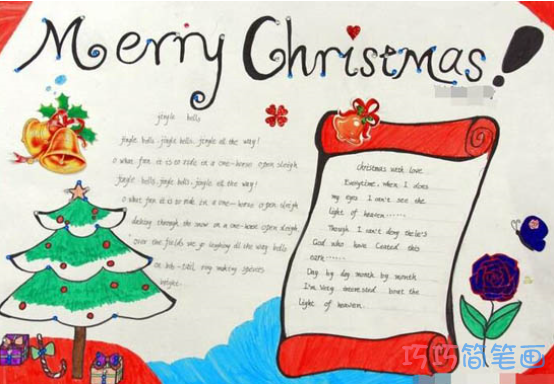 Merry Christmas!
jingle bells
jingle bells, jingle bells, jingle all the way!
o what fun it is to ride in a one-horse open sleigh
jingle bells, jingle bells, jingle all the way!
o what fun it is to ride in a one-horse open sleigh
dashing through the snow in a one-horse open sleigh
over the fields we go laughing all the way bells
on bob-tail ring making spirits
bright.
Christmas wish love
Everytime, when I close
my eyes I can't see the
light of heaven......
Though I can't deny there's
God who have Coated this
Day by day month by month
I'm Very interested the
Light of heaven
巧巧简笔画